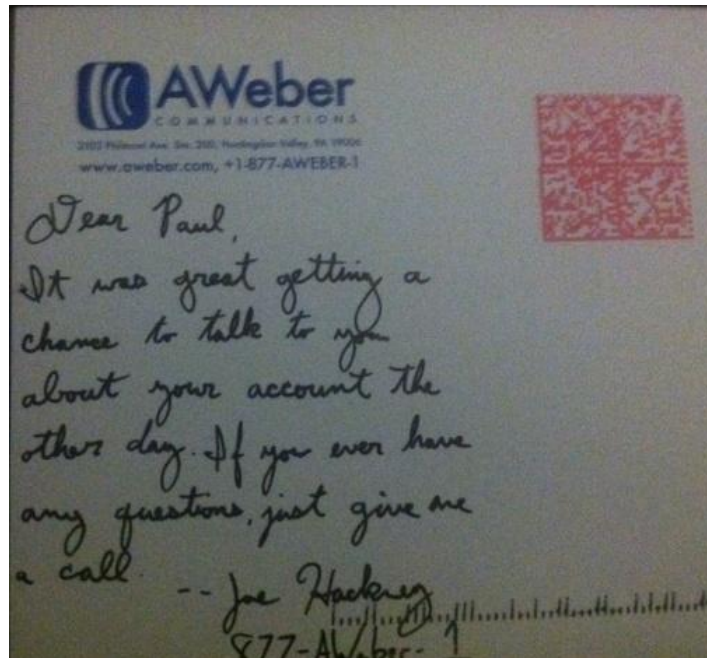 AWeber
COMMUNICATIONS
2103 Philmont Ave. Ste. 200, Huntingdon Valley, PA 19006
www.aweber.com, +1-877-AWEBER-1
Dear Paul,
It was great getting a
chance to talk to you
about your account the
other day. If you ever have
any questions, just give me
a call.
-- Joe Hackney
877-AWeber-1